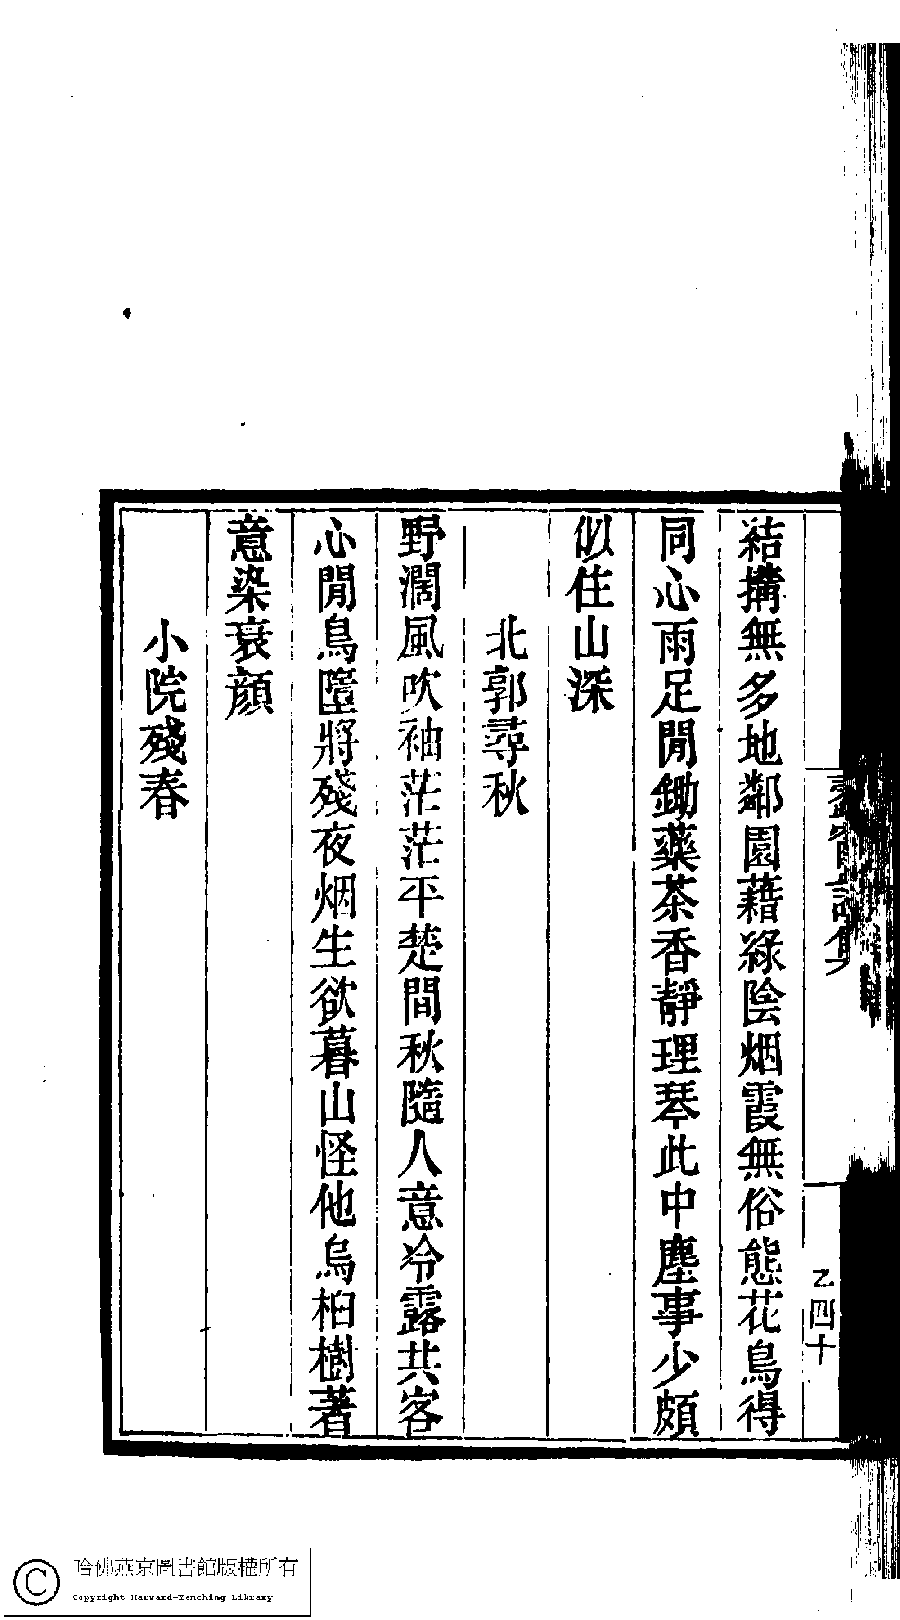 結搆無多地鄰園藉綠陰烟霞無俗態花鳥得
同心雨足閒鋤藥茶香靜理琴此中塵事少頗
似住山深
北郭尋秋
野濶風吹袖茫茫平楚間秋隨人意冷露共客
心閒鳥墮將殘夜烟生欲暮山怪他烏桕樹著
意染衰顔
小院殘春
乙四十
哈佛燕京圖書館版權所有
Copyright Harvard-Yenching Library